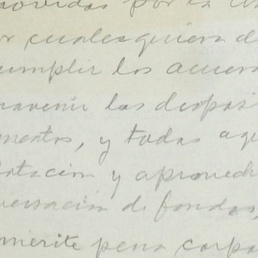 movidas por la
or cualesquiera d
cumplir los acuer
travenir las dispos
mentos, y todas aq
lotación y aprovech
versación de fondos,
merite pena corpo